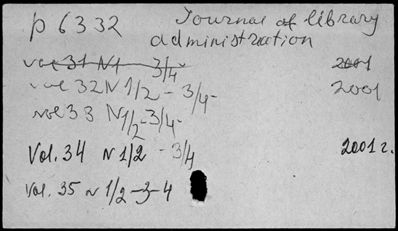 p 6332 Journal of library
administration
vol 31 N1 3/4 2001
vol 32 N 1/2 - 3/4 - 2001
vol 33 N 1/2 - 3/4 -
Vol. 34 N 1/2 - 3/4 2001 г.
Vol. 35 N 1/2 - 3 - 4